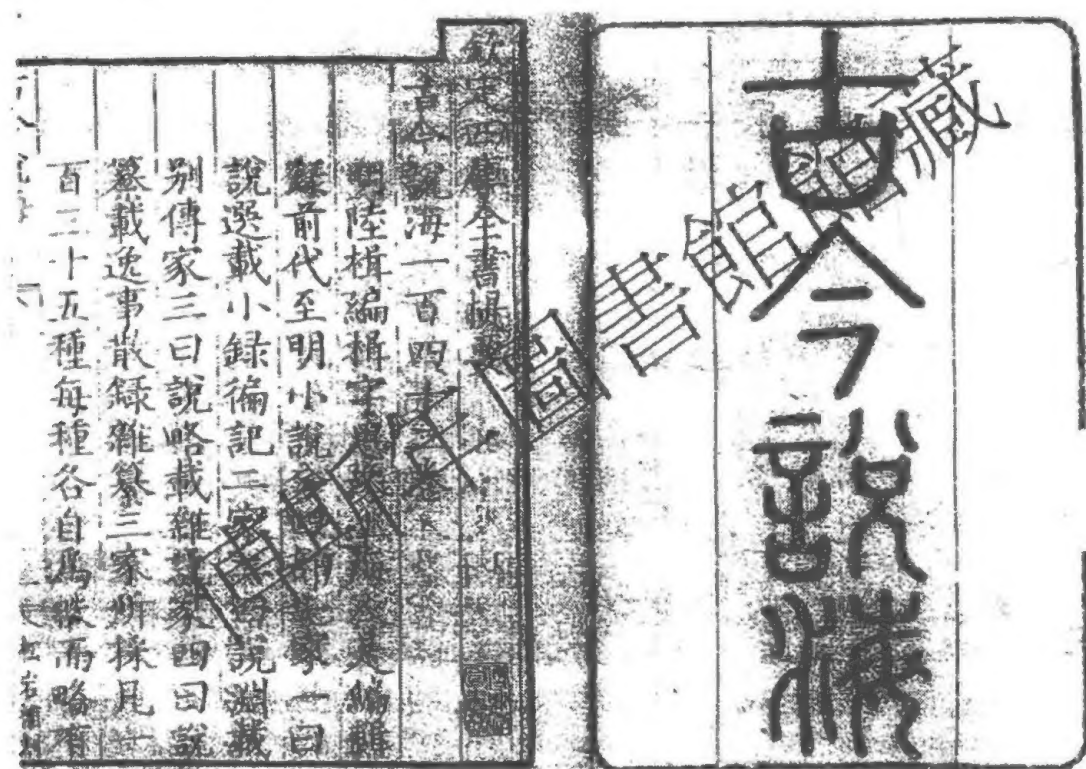 古今說海
圖書館藏
欽定四庫全書提要
古今說海一百四十二卷
明陸楫編楫字思豫上海人是編雜
錄前代至明小說分四部七家一曰
說選載小錄徧記二家二曰說淵載
別傳家三曰說略載雜記家四曰說
纂載逸事散錄雜纂三家所採凡一
百三十五種每種各自爲帙而略有